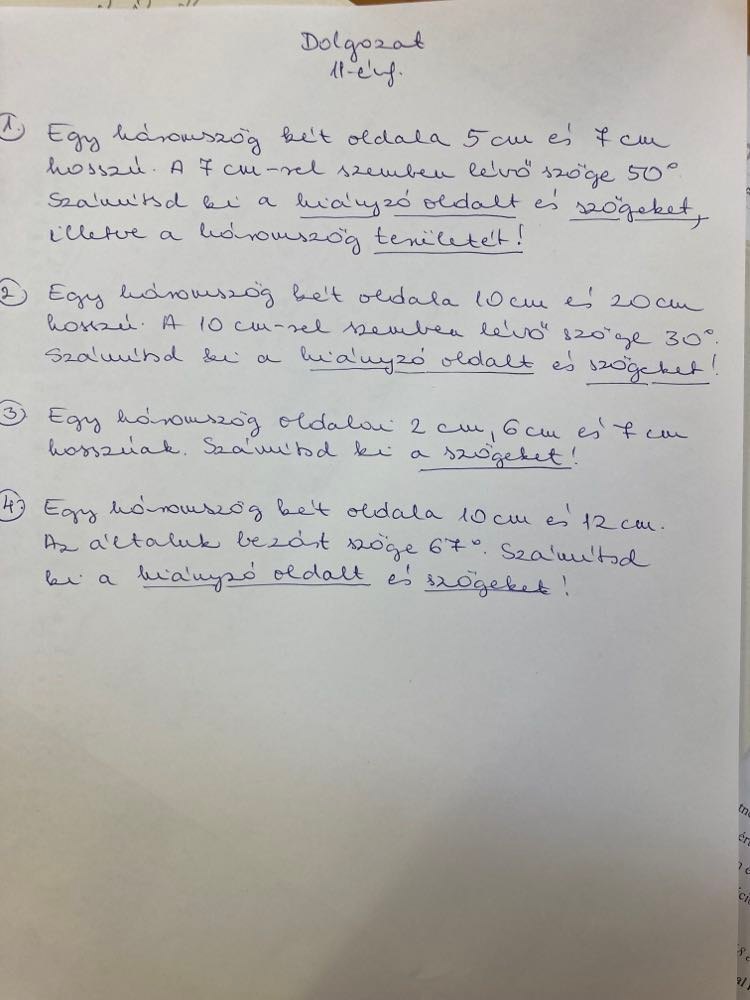 Dolgozat
11-évf.
1. Egy háromszög két oldala 5 cm és 7 cm
hosszú. A 7 cm-rel szemben lévő szöge 50°.
Számítsd ki a hiányzó oldalt és szögeket,
illetve a háromszög területét!
2. Egy háromszög két oldala 10 cm és 20 cm
hosszú. A 10 cm-rel szemben lévő szöge 30°.
Számítsd ki a hiányzó oldalt és szögeket!
3. Egy háromszög oldalai 2 cm, 6 cm és 7 cm
hosszúak. Számítsd ki a szögeket!
4. Egy háromszög két oldala 10 cm és 12 cm.
Az általuk bezárt szöge 67°. Számítsd
ki a hiányzó oldalt és szögeket!